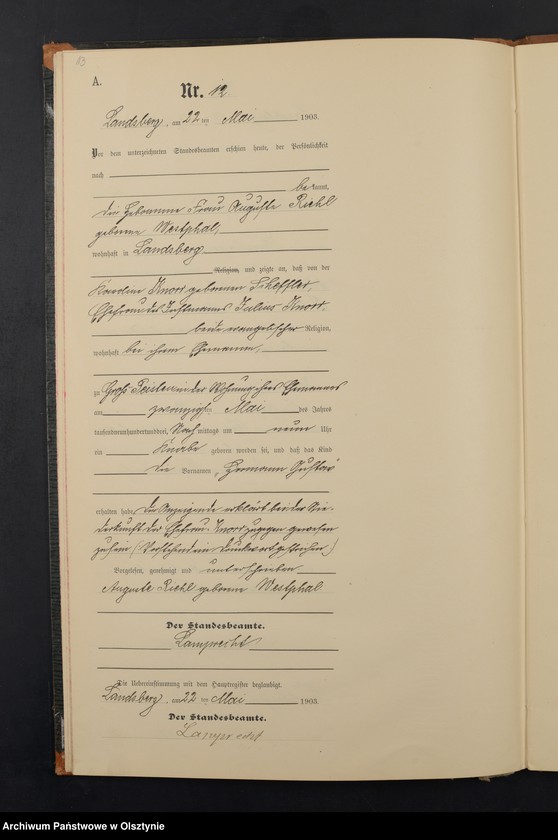 13
A.
Nr. 12
Landsberg, am 22 ten Mai 1903.
Vor dem unterzeichneten Standesbeamten erschien heute, der Persönlichkeit
nach
bekannt,
die Hebamme Frau Auguste Riehl
geborne Westphal,
wohnhaft in Landsberg
Religion, und zeigte an, daß von der
Karoline Knorr geborenen Scheffler,
Ehefrau des Instmannes Julius Knorr,
beide evangelischer Religion,
wohnhaft bei ihrem Ehemanne,
zu Groß Peisten in der Wohnung ihres Ehemannes
am zwanzigsten Mai des Jahres
tausendneunhundertunddrei, Nachmittags um neun Uhr
ein Knabe geboren worden sei, und daß das Kind
die Vornamen „Hermann Gustav“
erhalten habe. Die Anzeigende erklärt bei der Nie-
derkunft der Ehefrau Knorr zugegen gewesen
zu sein. (Vorstehend ein Druckwort gestrichen.)
Vorgelesen, genehmigt und unterschrieben
Auguste Riehl geborne Westphal
Der Standesbeamte.
Lamprecht
Die Uebereinstimmung mit dem Hauptregister beglaubigt.
Landsberg, am 22 ten Mai 1903.
Der Standesbeamte.
Lamprecht
Archiwum Państwowe w Olsztynie